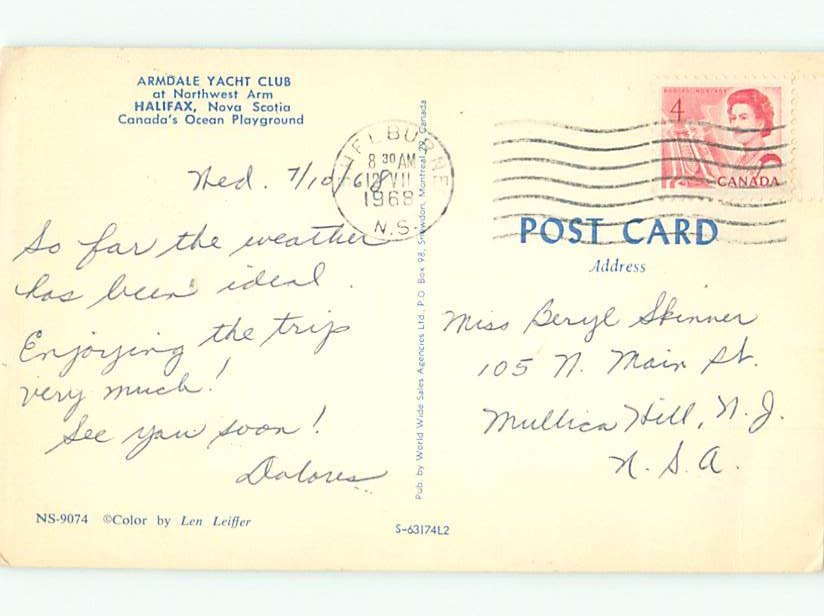 ARMDALE YACHT CLUB
at Northwest Arm
HALIFAX, Nova Scotia
Canada's Ocean Playground
Wed. 7/10/68
So far the weather
has been ideal.
Enjoying the trip
very much!
See you soon!
Dolores
NS-9074 ©Color by Len Leiffer
S-63174L2
Pub. by World Wide Sales Agencies Ltd., P.O. Box 98, Snowdon, Montreal 29, Canada
SHELBURNE
8 30 AM
12 VII
1968
N.S.
POSTAGE POSTES
4
CANADA
POST CARD
Address
Miss Beryl Skinner
105 N. Main St.
Mullica Hill, N.J.
U.S.A.